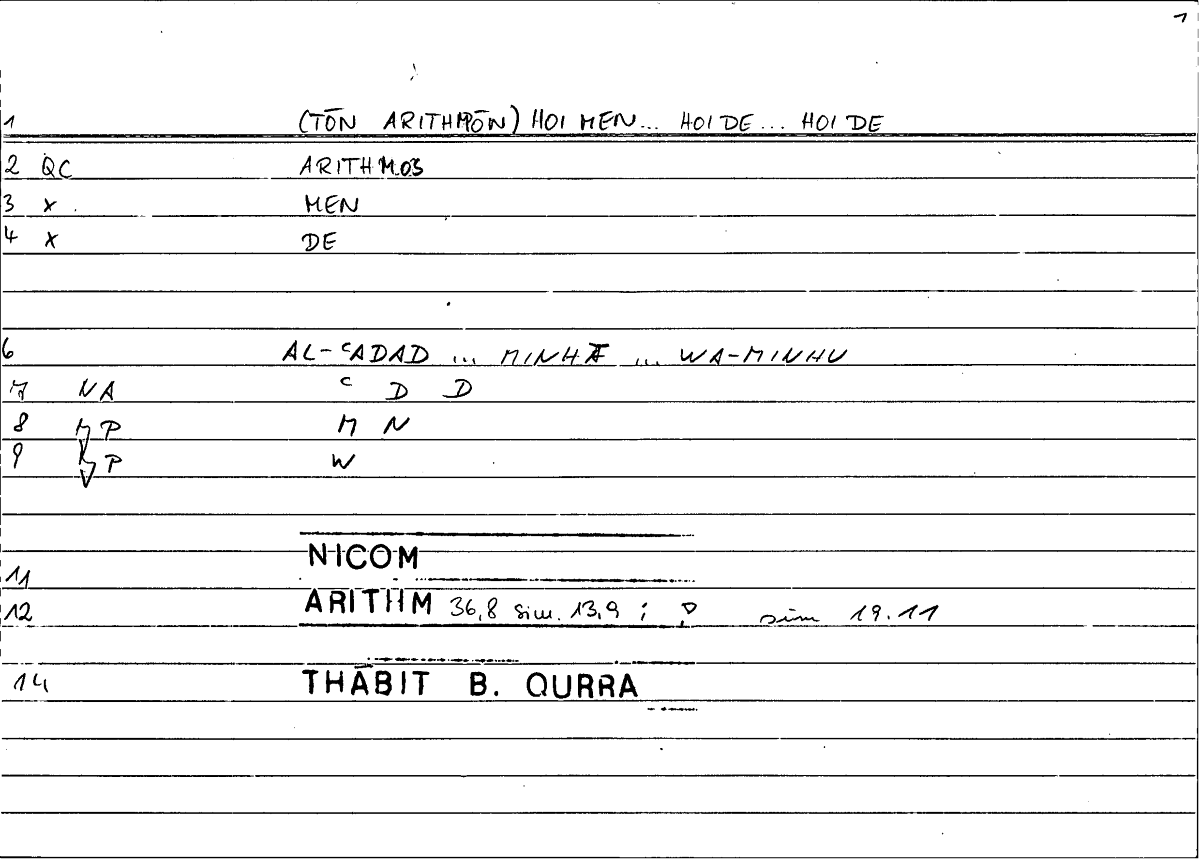 1
1 (TŌN ARITHMŌN) HOI MEN... HOI DE... HOI DE
2 QC ARITHMOS
3 x MEN
4 x DE
6 AL-ʿADAD ... MINHĀ ... WA-MINHU
7 NA ʿ D D
8 P M N
9 P W
11 NICOM
12 ARITHM 36,8 sim. 13,9 ; sim 19.11
14 THĀBIT B. QURRA